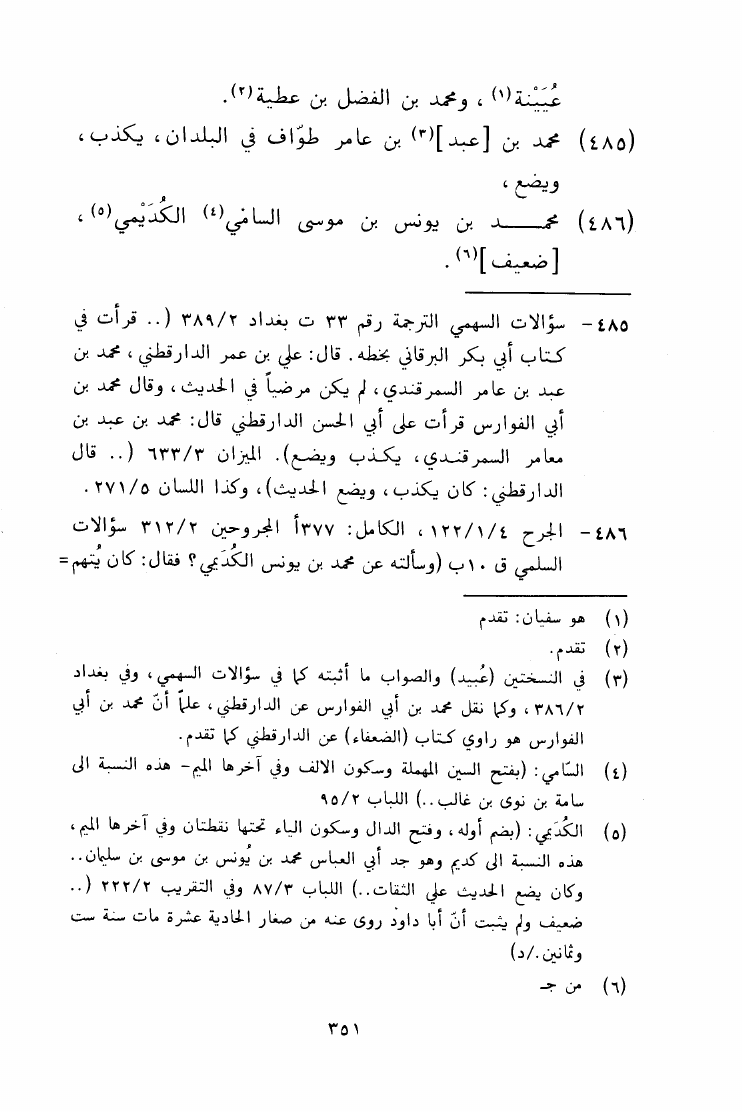 عُيَيْنة(١) ، ومحمد بن الفضل بن عطية(٢).
(٤٨٥) محمد بن [عبد](٣) بن عامر طوّاف في البلدان، يكذب،
ويضع،
(٤٨٦) محمـــد بن يونس بن موسى السامْي(٤) الكُدَيْمي(٥) ،
[ضعيف](٦) .
٤٨٥ – سؤالات السهمي الترجمة رقم ٣٣ ت بغداد ٣٨٩/٢ (.. قرأت في
كتاب أبي بكر البرقاني بخطه. قال: علي بن عمر الدارقطني، محمد بن
عبد بن عامر السمرقندي، لم يكن مرضياً في الحديث، وقال محمد بن
أبي الفوارس قرأت على أبي الحسن الدارقطني قال: محمد بن عبد بن
معامر السمرقندي، يكذب ويضع). الميزان ٦٣٣/٣ (.. قال
الدارقطني: كان يكذب، ويضع الحديث)، وكذا اللسان ٢٧١/٥.
٤٨٦ – الجرح ١٢٢/١/٤ ، الكامل: ٣٧٧أ المجروحين ٣١٢/٢ سؤالات
السلمي ق ١٠ب (وسألته عن محمد بن يونس الكُدَيمي؟ فقال: كان يُتهم=
(١) هو سفيان: تقدم
(٢) تقدم.
(٣) في النسختين (عُبيد) والصواب ما أثبته كما في سؤالات السهمي، وفي بغداد
٣٨٦/٢ ، وكما نقل محمد بن أبي الفوارس عن الدارقطني، علماً أنّ محمد بن أبي
الفوارس هو راوي كتاب (الضعفاء) عن الدارقطني كما تقدم.
(٤) السّامي: (بفتح السين المهملة وسكون الالف وفي آخرها الميم– هذه النسبة الى
سامة بن نوى بن غالب..) اللباب ٩٥/٢
(٥) الكُدَيمي: (بضم أوله، وفتح الدال وسكون الياء تحتها نقطتان وفي آخرها الميم،
هذه النسبة الى كديم وهو جد أبي العباس محمد بن يُونس بن موسى بن سليمان..
وكان يضع الحديث على الثقات..) اللباب ٨٧/٣ وفي التقريب ٢٢٢/٢ (..
ضعيف ولم يثبت أنّ أبا داود روى عنه من صغار الحادية عشرة مات سنة ست
وثمانين./د)
(٦) من جـ
٣٥١